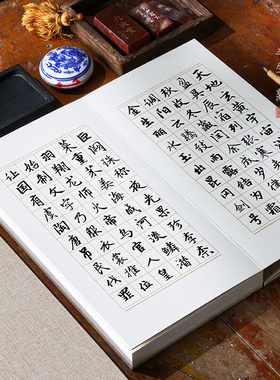 天地玄黄宇宙洪荒日月
盈昃辰宿列张寒来暑往
秋收冬藏闰余成岁律吕
调阳云腾致雨露结为霜
金生丽水玉出昆冈剑号
巨阙珠称夜光果珍李柰
菜重芥姜海咸河淡鳞潜
羽翔龙师火帝鸟官人皇
始制文字乃服衣裳推位
让国有虞陶唐吊民伐罪